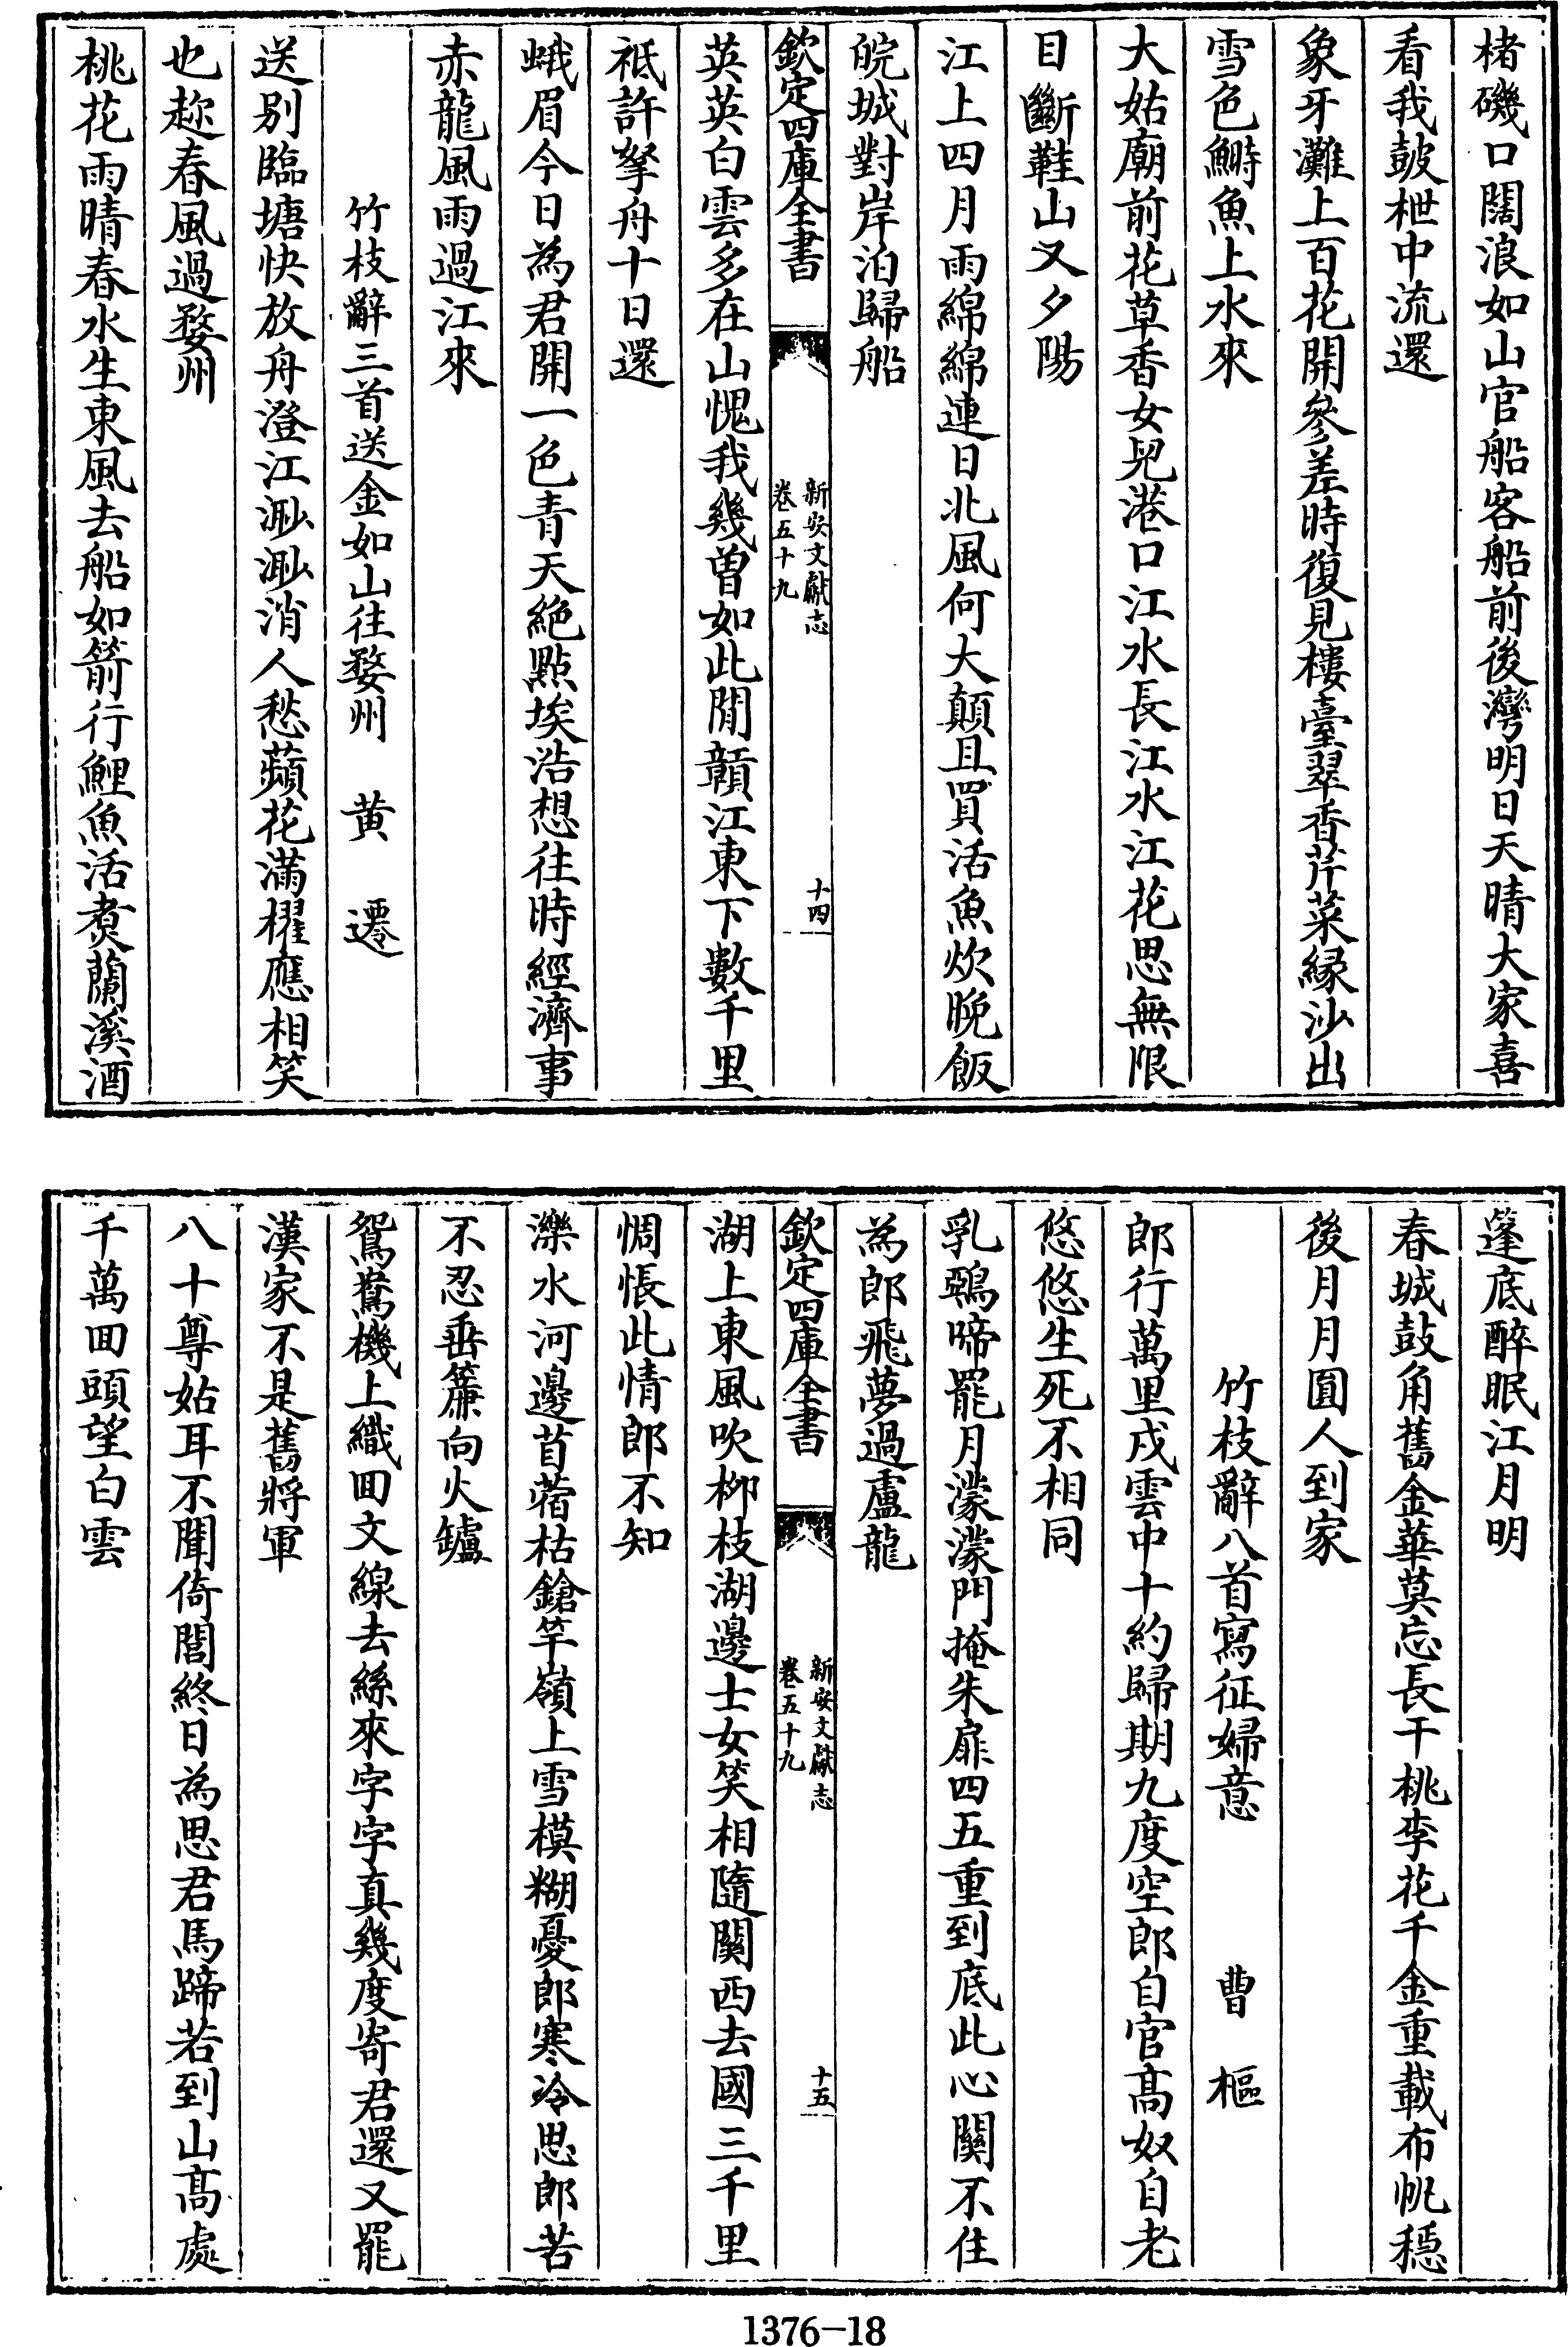 楮磯口闊浪如山官船客船前後灣明日天晴大家喜
看我鼓枻中流還
象牙灘上百花開參差時復見樓臺翠香芹菜緑沙出
雪色鰣魚上水來
大姑廟前花草香女兒港口江水長江水江花思無限
目斷鞋山又夕陽
江上四月雨綿綿連日北風何大顛且買活魚炊晚飯
皖城對岸泊歸船
欽定四庫全書
新安文獻志
卷五十九
十四
英英白雲多在山愧我幾曾如此閒贛江東下數千里
祗許拏舟十日還
蛾眉今日為君開一色青天絶點埃浩想往時經濟事
赤龍風雨過江來
竹枝辭三首送金如山往婺州 黄 遷
送别臨塘快放舟澄江渺渺消人愁蘋花滿櫂應相笑
也趂春風過婺州
桃花雨晴春水生東風去船如箭行鯉魚活煑蘭溪酒
篷底醉眠江月明
春城鼓角舊金華莫忘長干桃李花千金重載布帆穏
後月月圓人到家
竹枝辭八首寫征婦意 曹 樞
郎行萬里戍雲中十約歸期九度空郎自官髙奴自老
悠悠生死不相同
乳鵶啼罷月濛濛門掩朱扉四五重到底此心關不住
為郎飛夢過盧龍
欽定四庫全書
新安文獻志
卷五十九
十五
湖上東風吹柳枝湖邊士女笑相隨關西去國三千里
惆悵此情郎不知
濼水河邊苜蓿枯鎗竿嶺上雪模糊憂郎寒冷思郎苦
不忍垂簾向火鑪
鴛鴦機上織回文線去絲來字字真幾度寄君還又罷
漢家不是舊將軍
八十尊姑耳不聞倚閭終日為思君馬蹄若到山髙處
千萬回頭望白雲
1376-18